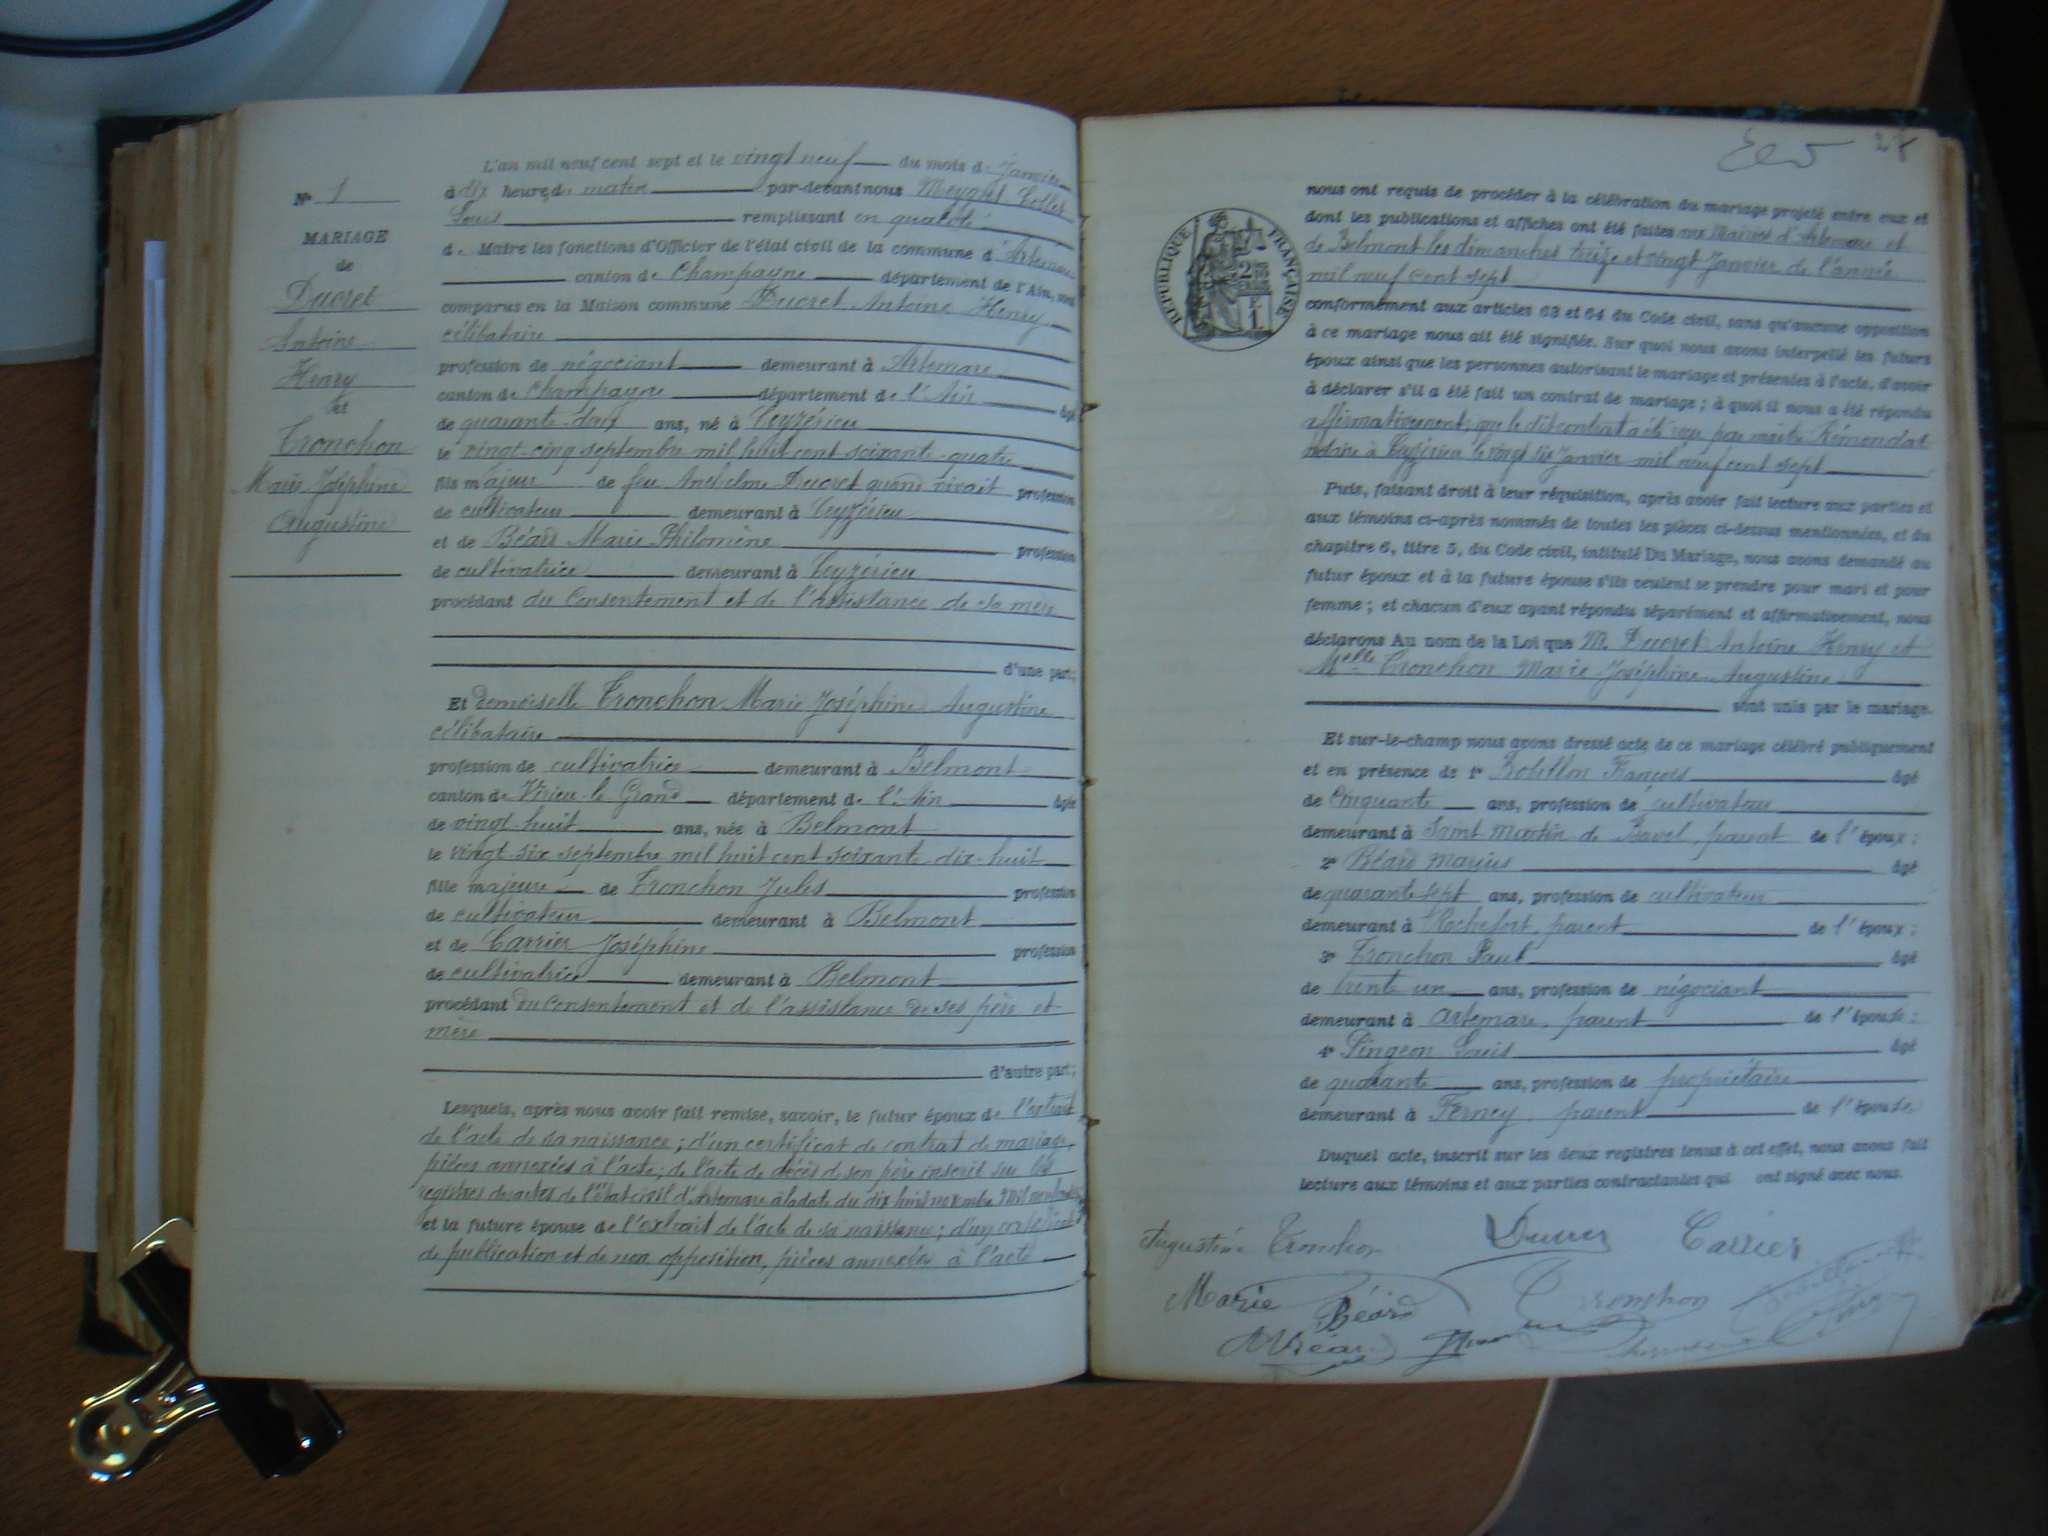 L'an mil neuf cent sept et le vingt neuf du mois de Janvier
Nº 1
à dix heures du matin par-devant nous Meygret Collet
Louis remplissant en qualité
MARIAGE
de Maire les fonctions d'Officier de l'état civil de la commune d'Artemare
de
canton de Champagne département de l'Ain, sont
Ducret
comparus en la Maison commune Ducret Antoine Henry
Antoine
célibataire
Henry
profession de négociant demeurant à Artemare
et
canton de Champagne département de l'Ain âgé
de quarante-deux ans, né à Ceyzérieu
Tronchon
le vingt-cinq septembre mil huit cent soixante-quatre
Marie Joséphine
fils majeur de feu Anthelme Ducret quand vivait profession
Augustine
de cultivateur demeurant à Ceyzérieu
et de Béard Marie Philomène profession
de cultivatrice demeurant à Ceyzérieu
procédant du Consentement et de l'assistance de sa mère
d'une part;
Et demoiselle Tronchon Marie Joséphine Augustine
célibataire
profession de cultivatrice demeurant à Belmont
canton de Virieu-le-Grand département de l'Ain âgée
de vingt-huit ans, née à Belmont
le vingt-six septembre mil huit cent soixante dix-huit
fille majeure de Tronchon Jules profession
de cultivateur demeurant à Belmont
et de Carrier Joséphine profession
de cultivatrice demeurant à Belmont
procédant du Consentement et de l'assistance de ses père et
mère
d'autre part;
Lesquels, après nous avoir fait remise, savoir, le futur époux de l'extrait
de l'acte de sa naissance; d'un certificat de contrat de mariage,
pièces annexées à l'acte; de l'acte de décès de son père inscrit sur les
registres des actes de l'état civil d'Artemare à la date du dix huit novembre mil
et la future épouse de l'extrait de l'acte de sa naissance; d'un certificat
de publication et de non opposition, pièces annexées à l'acte
28
RÉPUBLIQUE FRANÇAISE
nous ont requis de procéder à la célébration du mariage projeté entre eux et
dont les publications et affiches ont été faites aux Mairies d'Artemare et
de Belmont les dimanches treize et vingt Janvier de l'année
mil neuf cent sept
conformément aux articles 63 et 64 du Code civil, sans qu'aucune opposition
à ce mariage nous ait été signifiée. Sur quoi nous avons interpellé les futurs
époux ainsi que les personnes autorisant le mariage et présentes à l'acte, d'avoir
à déclarer s'il a été fait un contrat de mariage; à quoi il nous a été répondu
affirmativement; que le dit contrat a été reçu par maître Rémondat
notaire à Ceyzérieu le vingt six Janvier mil neuf cent sept
Puis, faisant droit à leur réquisition, après avoir fait lecture aux parties et
aux témoins ci-après nommés de toutes les pièces ci-dessus mentionnées, et du
chapitre 6, titre 5, du Code civil, intitulé Du Mariage, nous avons demandé au
futur époux et à la future épouse s'ils veulent se prendre pour mari et pour
femme; et chacun d'eux ayant répondu séparément et affirmativement, nous
déclarons Au nom de la Loi que M. Ducret Antoine Henry et
Melle Tronchon Marie Joséphine Augustine
sont unis par le mariage.
Et sur-le-champ nous avons dressé acte de ce mariage célébré publiquement
et en présence de 1º François âgé
de cinquante ans, profession de cultivateur
demeurant à Saint Martin de Bavel, parent de l'époux;
2º Béard Marius âgé
de quarante sept ans, profession de cultivateur
demeurant à Rochefort, parent de l'époux;
3º Tronchon Paul âgé
de trente un ans, profession de négociant
demeurant à Artemare, parent de l'épouse;
4º Pingeon Louis âgé
de quarante ans, profession de propriétaire
demeurant à Ferney, parent de l'épouse
Duquel acte, inscrit sur les deux registres tenus à cet effet, nous avons fait
lecture aux témoins et aux parties contractantes qui ont signé avec nous.
Augustine Tronchon Ducret Carrier
Marie Béard Tronchon